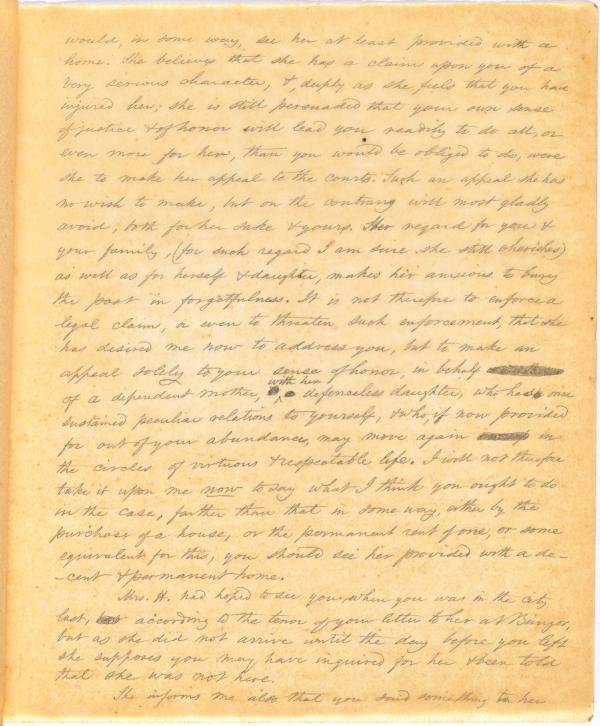 would, in some way, see her at least provided with a
home. She believes that she has a claim upon you of a
very serious character, &, deeply as she feels that you have
injured her, she is still persuaded that your own sense
of justice & of honor will lead you readily to do all, or
even more for her, than you would be obliged to do, were
she to make her appeal to the courts. Such an appeal she has
no wish to make, but on the contrary will most gladly
avoid, both for her sake & yours. Her regard for you &
your family, (for such regard I am sure she still cherishes)
as well as for herself & daughter, makes her anxious to bury
the past in forgetfulness. It is not therefore to enforce a
legal claim, or even to threaten such enforcement, that she
has desired me now to address you, but to make an
appeal solely to your sense of honor, in behalf
of a dependent mother, with her defenceless daughter, who has once
sustained peculiar relations to yourself, & who, if now provided
for out of your abundance, may move again in
the circles of virtuous & respectable life. I will not therefore
take it upon me now to say what I think you ought to do
in the case, farther than that in some way, either by the
purchase of a house, or the permanent rent of one, or some
equivalent for this, you should see her provided with a de-
-cent & permanent home.
Mrs. H. had hoped to see you when you was in the city
last, according to the tenor of your letter to her at Bangor,
but as she did not arrive until the day before you left
she supposes you may have inquired for her & been told
that she was not here.
She informs me also that you said something to her